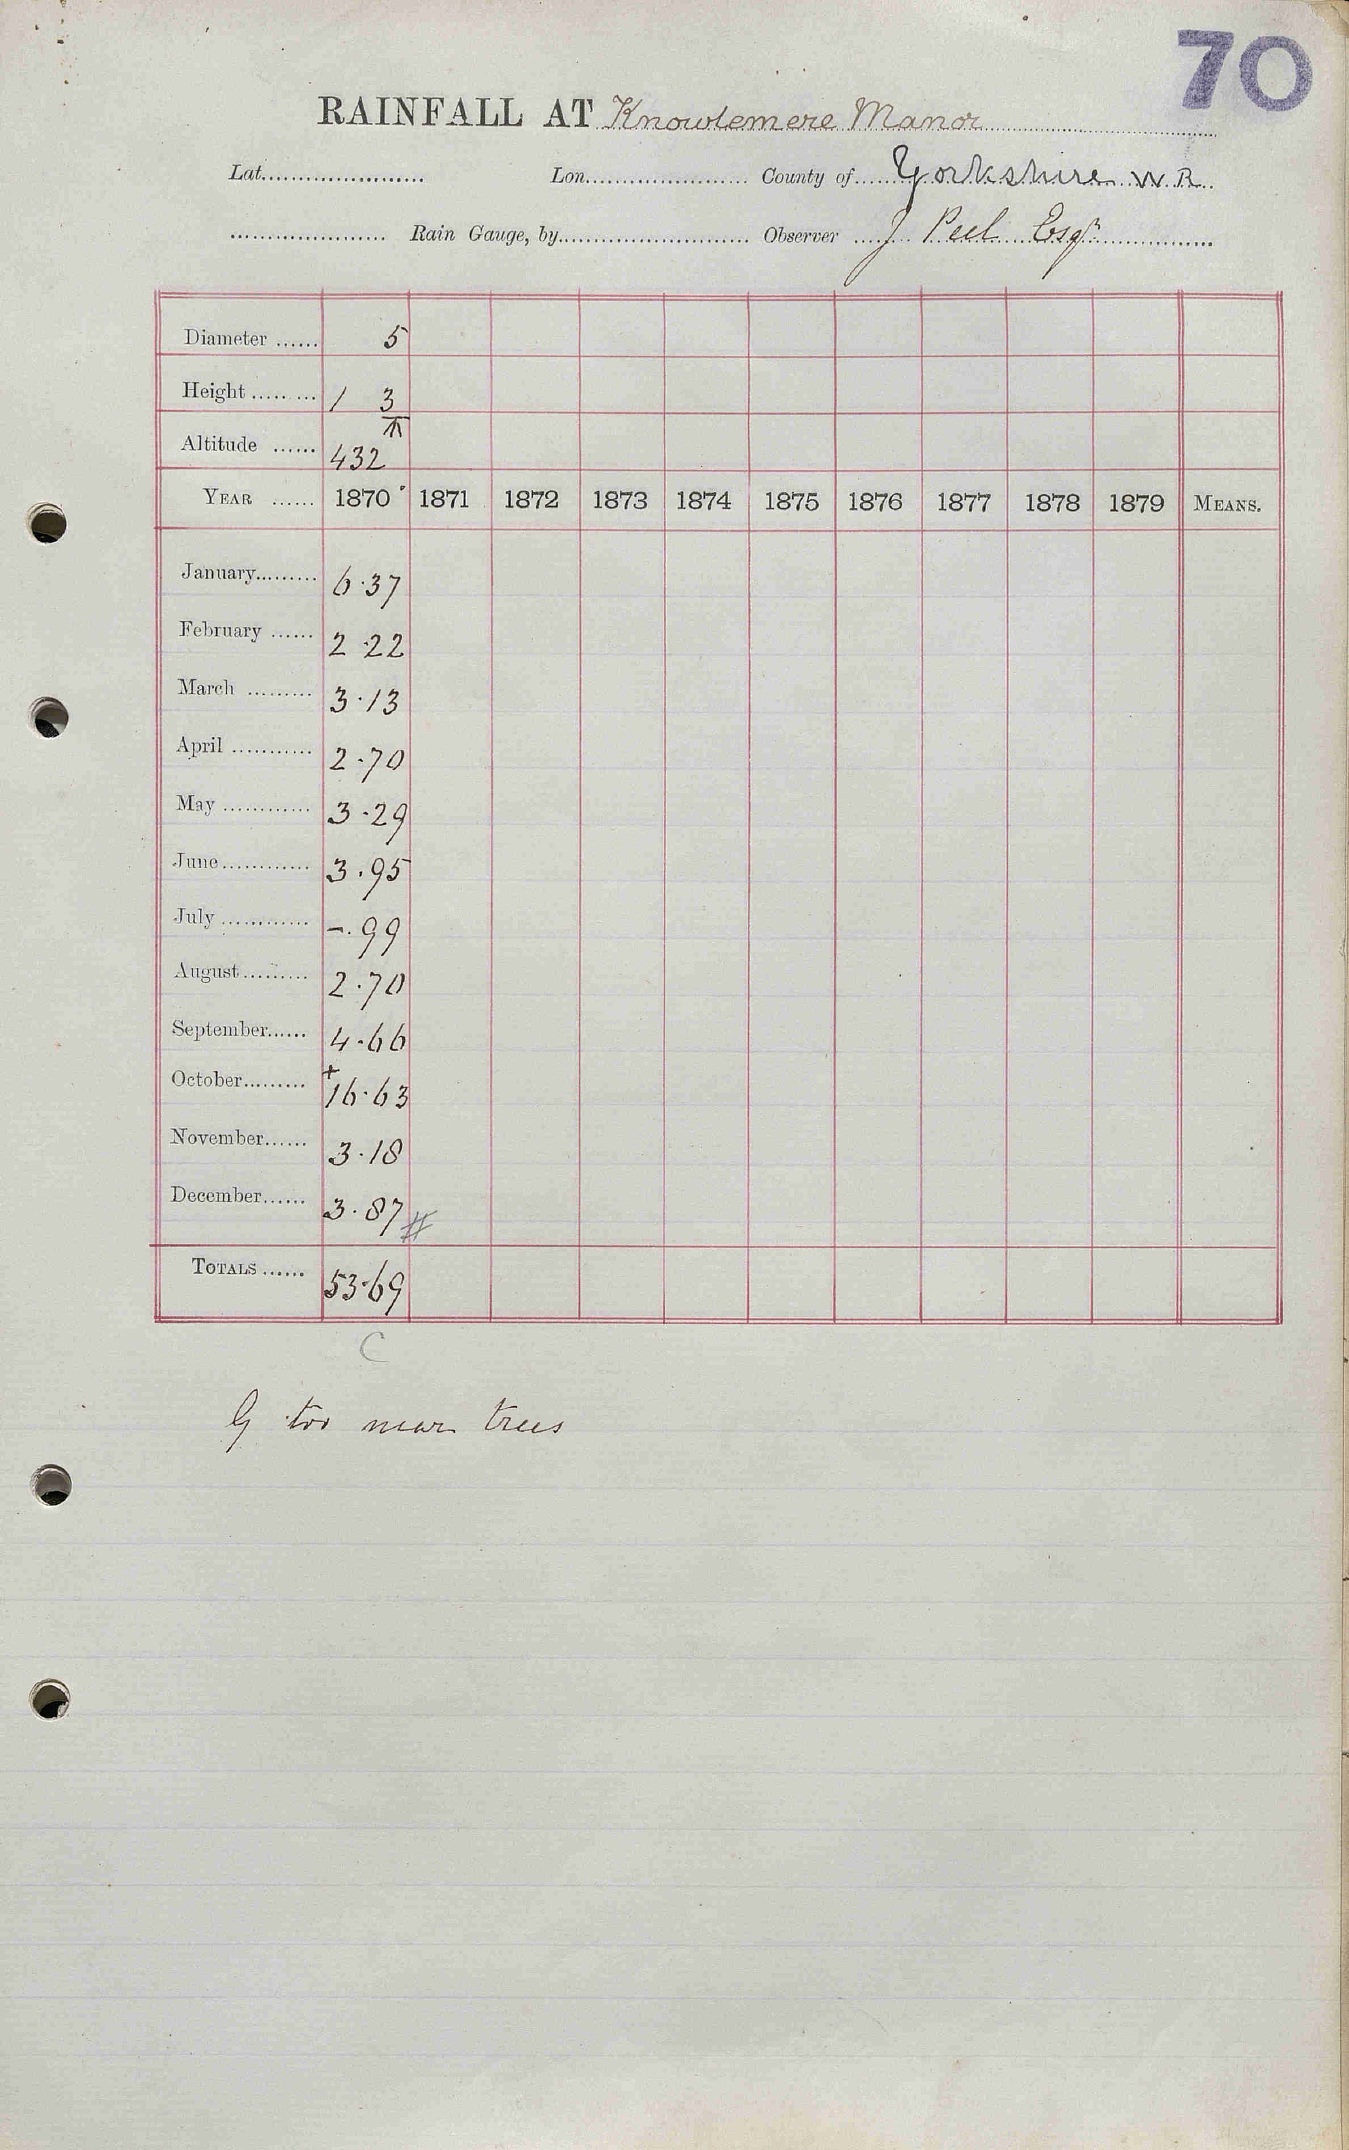 70
RAINFALL AT Knowlemere Manor
Lat. Lon. County of Yorkshire W.R.
Rain Gauge, by Observer J Peel Esqr
Diameter 5
Height 1 3
Altitude 432
YEAR 1870 1871 1872 1873 1874 1875 1876 1877 1878 1879 MEANS.
January 6.37
February 2.22
March 3.13
April 2.70
May 3.29
June 3.95
July -.99
August 2.70
September 4.66
October +16.63
November 3.18
December 3.87 #
TOTALS 53.69
C
G too near trees